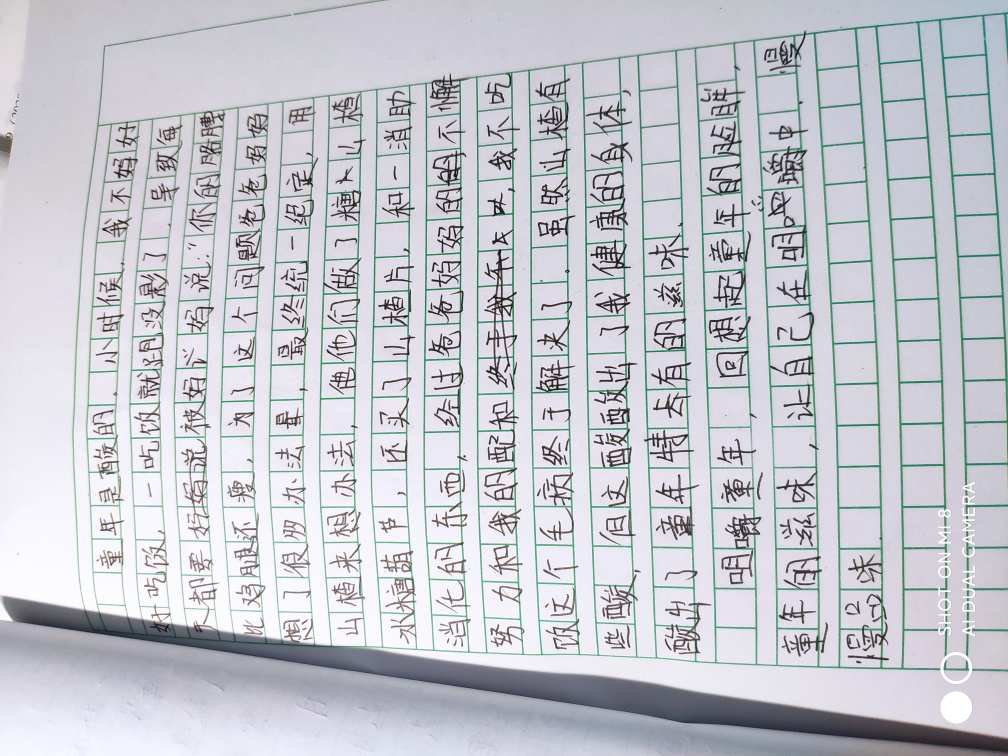 童年是酸的，小时候，我不妈好
好吃饭，一吃饭就跑没影了，导致每
天都要妈妈说被妈妈说："你的胳膊
比鸡腿还瘦，为了这个问题爸爸妈妈
想了很多办法最，最终统一绝定，用
山楂来想办法，他他们做了糖卜山楂
冰糖葫芦，还买了山楂片，和一消助
消化的东西，经过爸爸妈妈的不懈
努力和我的配和终于我，我不吃
饭这个毛病终于解夬了．虽然山楂有
些酸，但这酸酸出了我健康的身体，
酸出了童年特去有的滋味．
咀嚼童年，回想起童年的
童年的滋味，让自己在咀嚼中．慢
慢回味．
SHOT ON MI 8
AI DUAL CAMERA